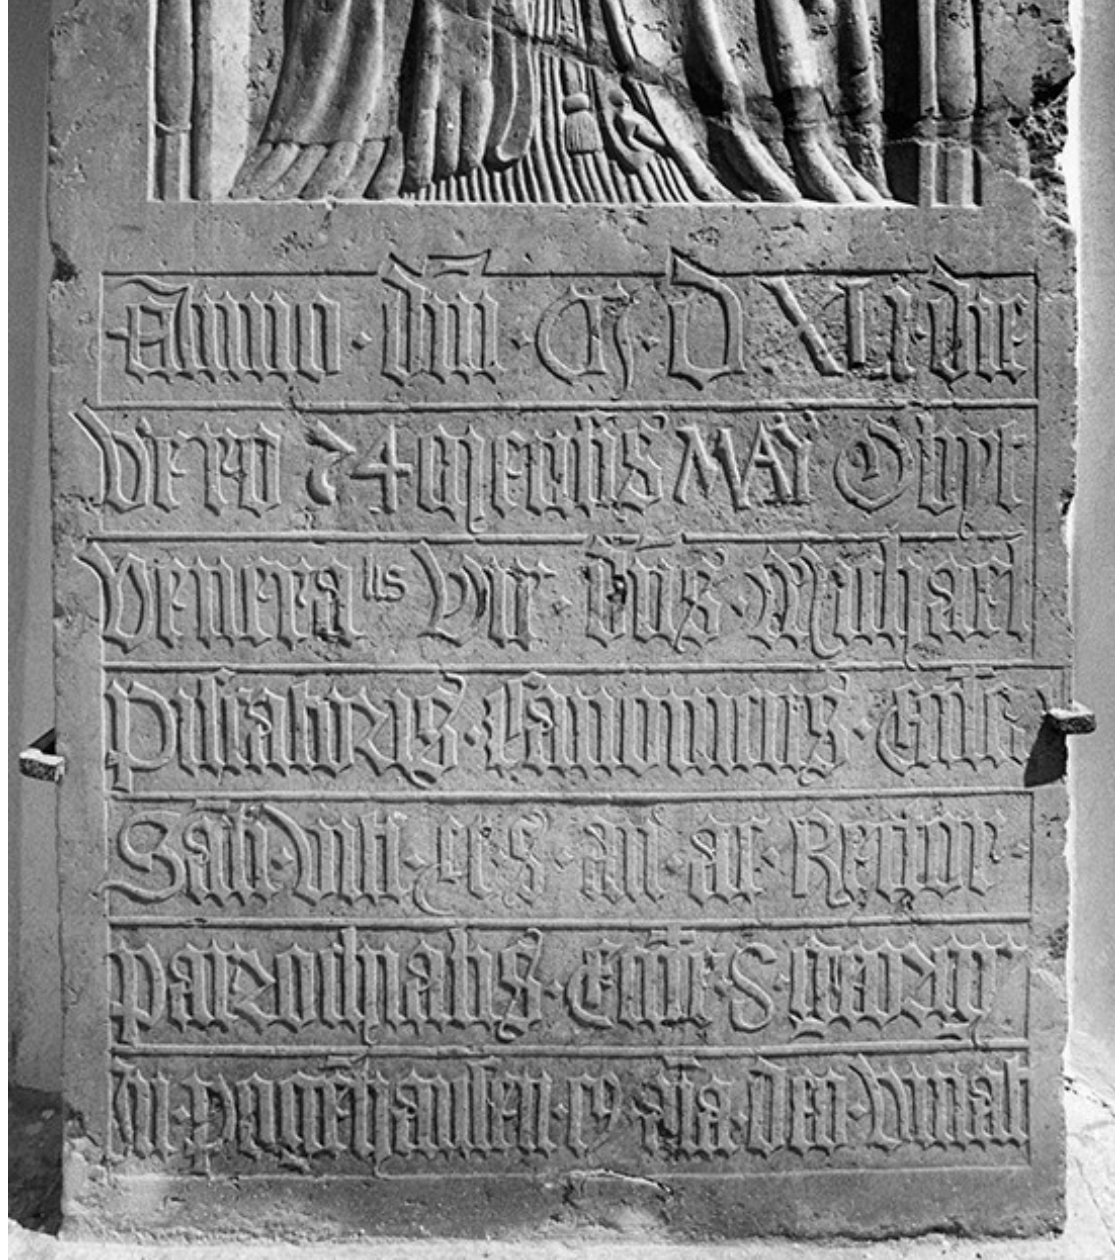 Anno · dni · M · D XLI · die
Vero 24 Mensis MAÿ Obyt
Veneralis Vir · dns · Michael
Piscatoris · Canonicus · Eccle
Sati · Viti · ac · Rector ·
parochialis · Eccle · S · georgy
in · pagēhausen · c9 · aīa · deo · vivat